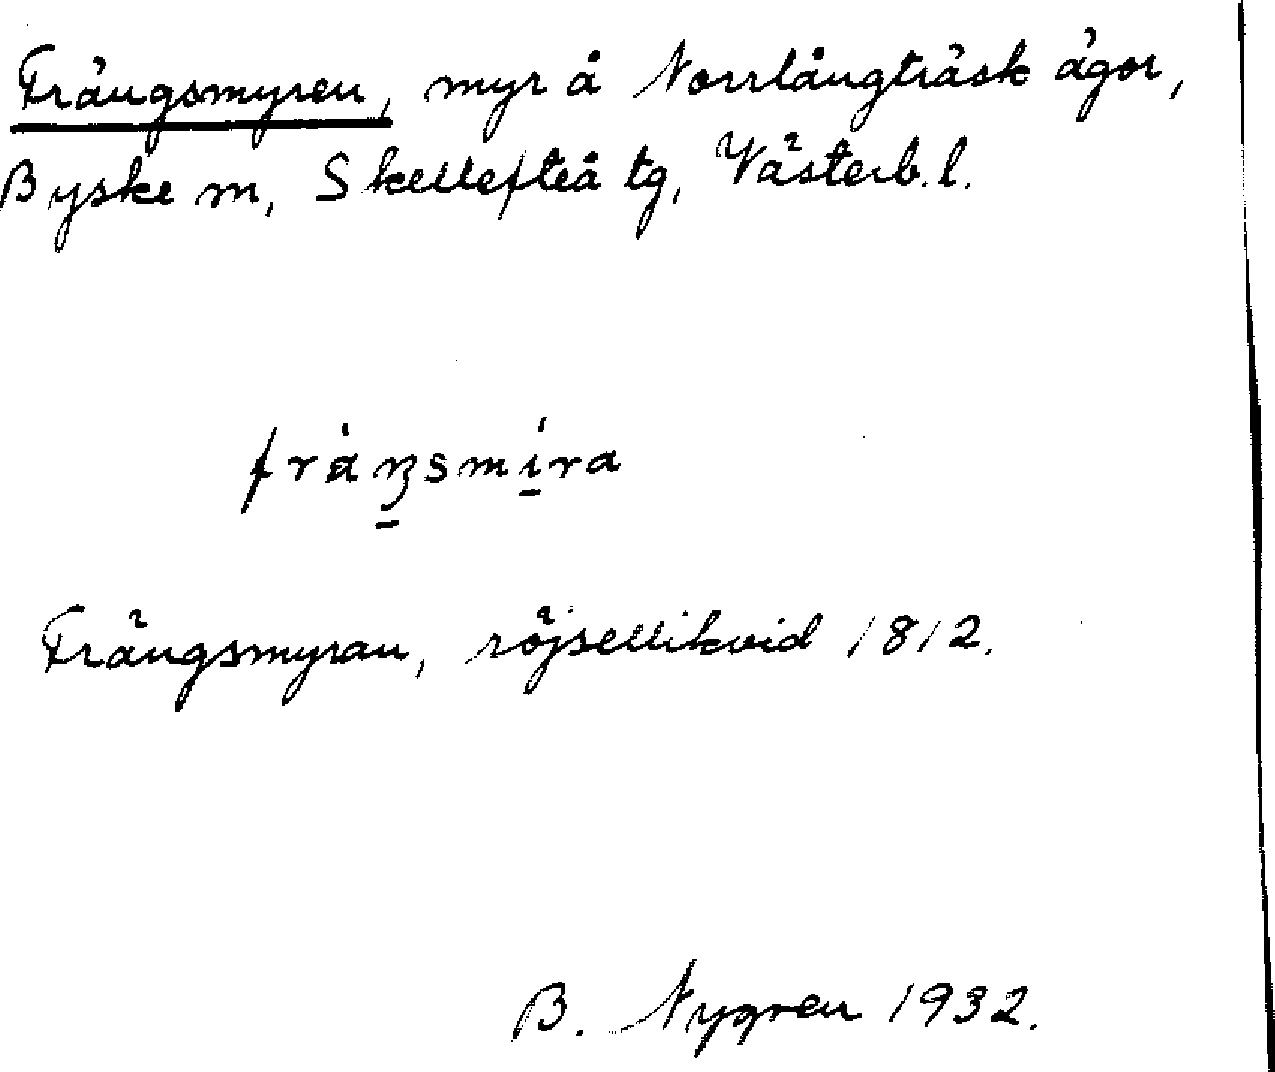 Frängsmyren, myr å Norrlångträsk ägor,
Byske m, Skellefteå tg, Västerb. l.
Frängsmyran, röjsellikvid 1812.
B. Nygren 1932.